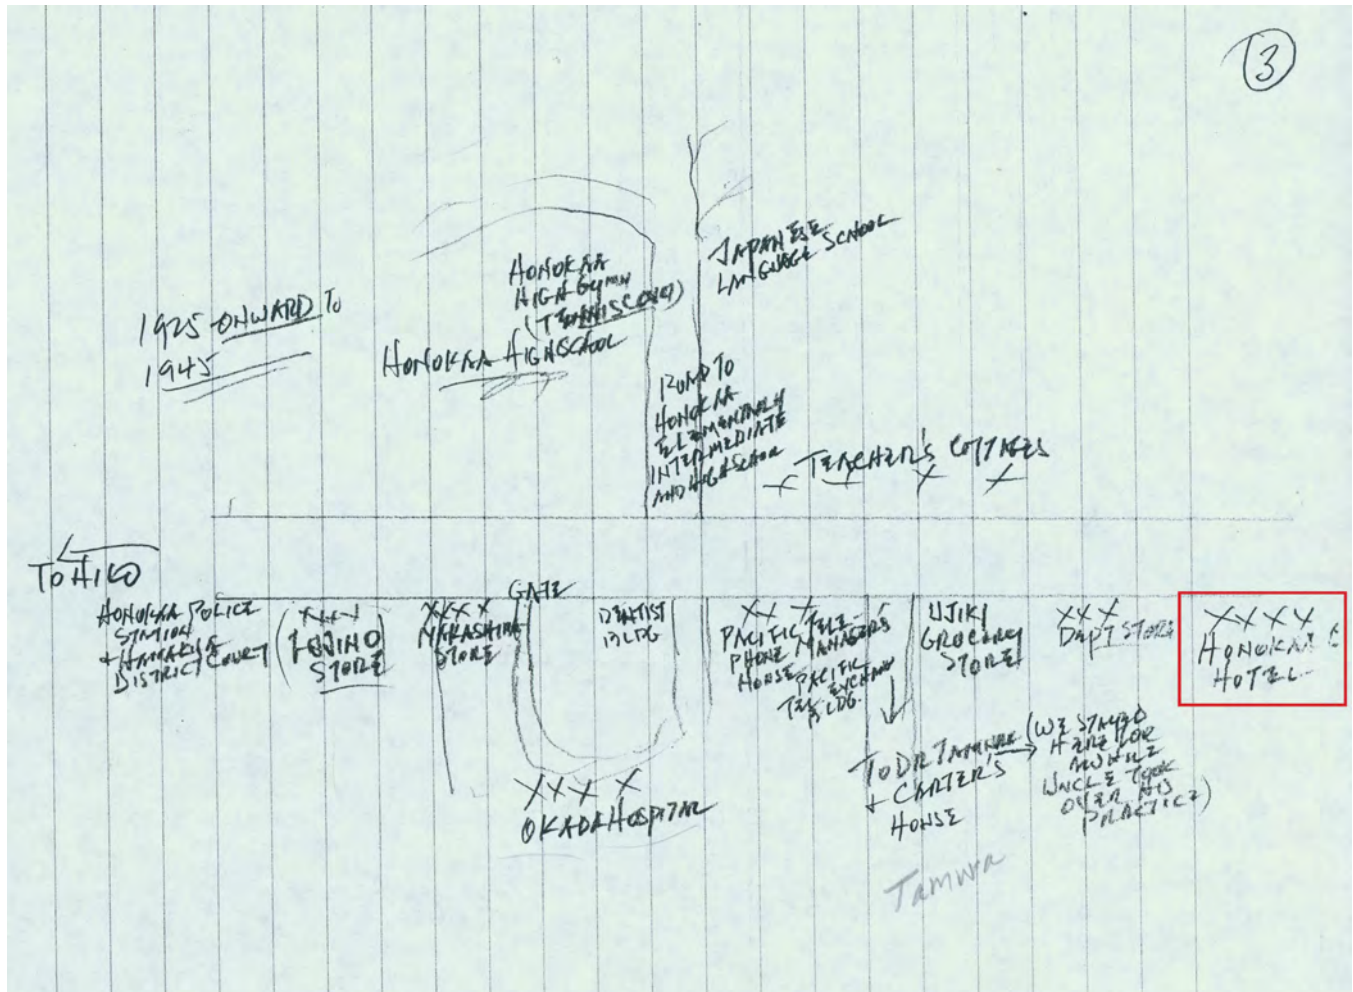 3
JAPANESE
LANGUAGE SCHOOL
HONOKAA
HIGH GYM
(TENNIS COURT)
HONOKAA HIGHSCHOOL
1925 ONWARD TO
1945
ROAD TO
HONOKAA
ELEMENTARLY
INTERMEDIATE
AND HIGHSCHOOL
TEACHER'S COTTAGES
X X X X
TO HILO
GATE
HONOKAA POLICE
STATION
+ HAMAKUA
DISTRICT COURT
XXXX
STORE
XXXX
STORE
DENTIST
BLDG
XX X
PACIFIC TELE-
PHONE MANAGERS
HOUSE PACIFIC
TEL EXCHANGE
BLDG.
UJIKI
GROCERY
STORE
XXX
DEPT STORE
XXXX
HONOKAA
HOTEL
XXX X
OKADA HOSPITAL
TO DR TAMURA
+ CARTER'S
HOUSE
(WE STAYED
HERE FOR
AWHILE
UNCLE TOOK
OVER HIS
PRACTICE)
Tamura